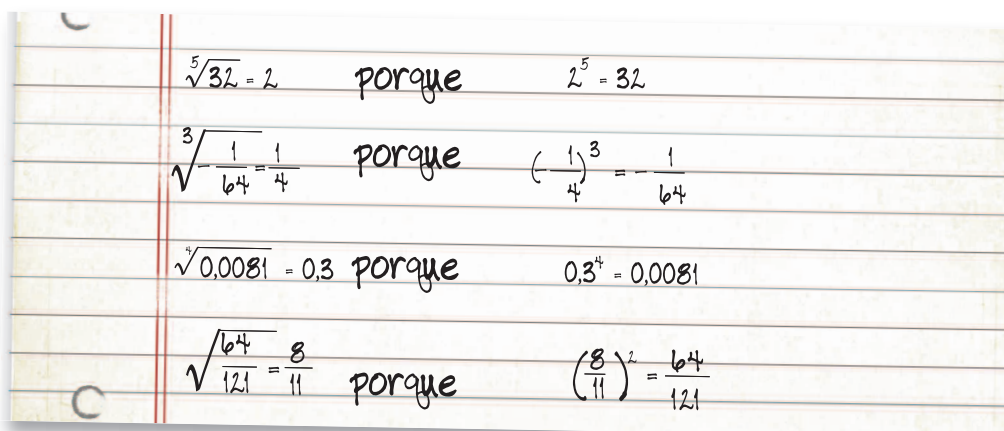 ⁵√32 = 2 porque 2⁵ = 32
³√(-1/64) = 1/4 porque (-1/4)³ = -1/64
⁴√0,0081 = 0,3 porque 0,3⁴ = 0,0081
√(64/121) = 8/11 porque (8/11)² = 64/121